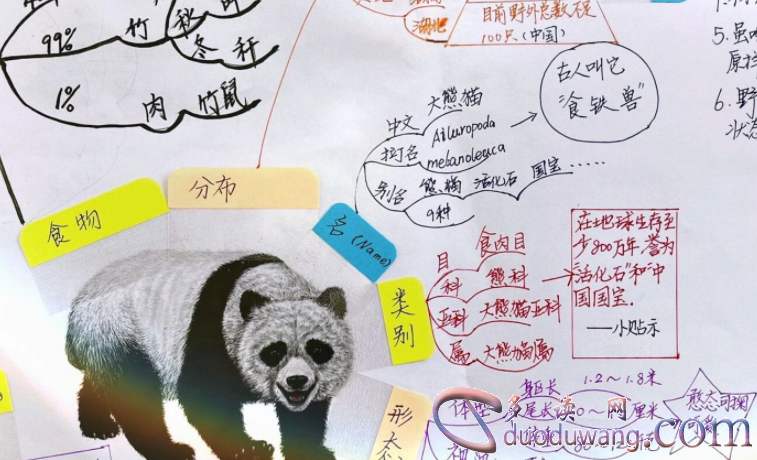 99% 竹
秋
冬 秆
1% 肉 竹鼠
湖北
目前野外总数不足
100只(中国)
5.
6.野
状态
古人叫它
“食铁兽”
中文 大熊猫
拉丁名 Ailuropoda
melanoleuca
别名 熊猫 活化石 国宝……
9种
食物
分布
名(Name)
类别
形态
目 食肉目
科 熊科
亚科 大熊猫亚科
属 大熊猫属
在地球生存至
少800万年,誉为
“活化石”和“中
国国宝.
——小贴示
体型
躯长 1.2~1.8米
尾长 10~ 厘米
憨态可掬
多读 网
duoduwang.com